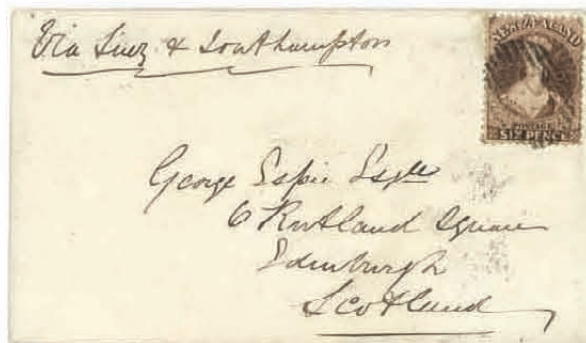 Via Suez & Southampton
NEW ZEALAND
POSTAGE
SIX PENCE
George Espie Esqre
6 Rutland Square
Edinburgh
Scotland